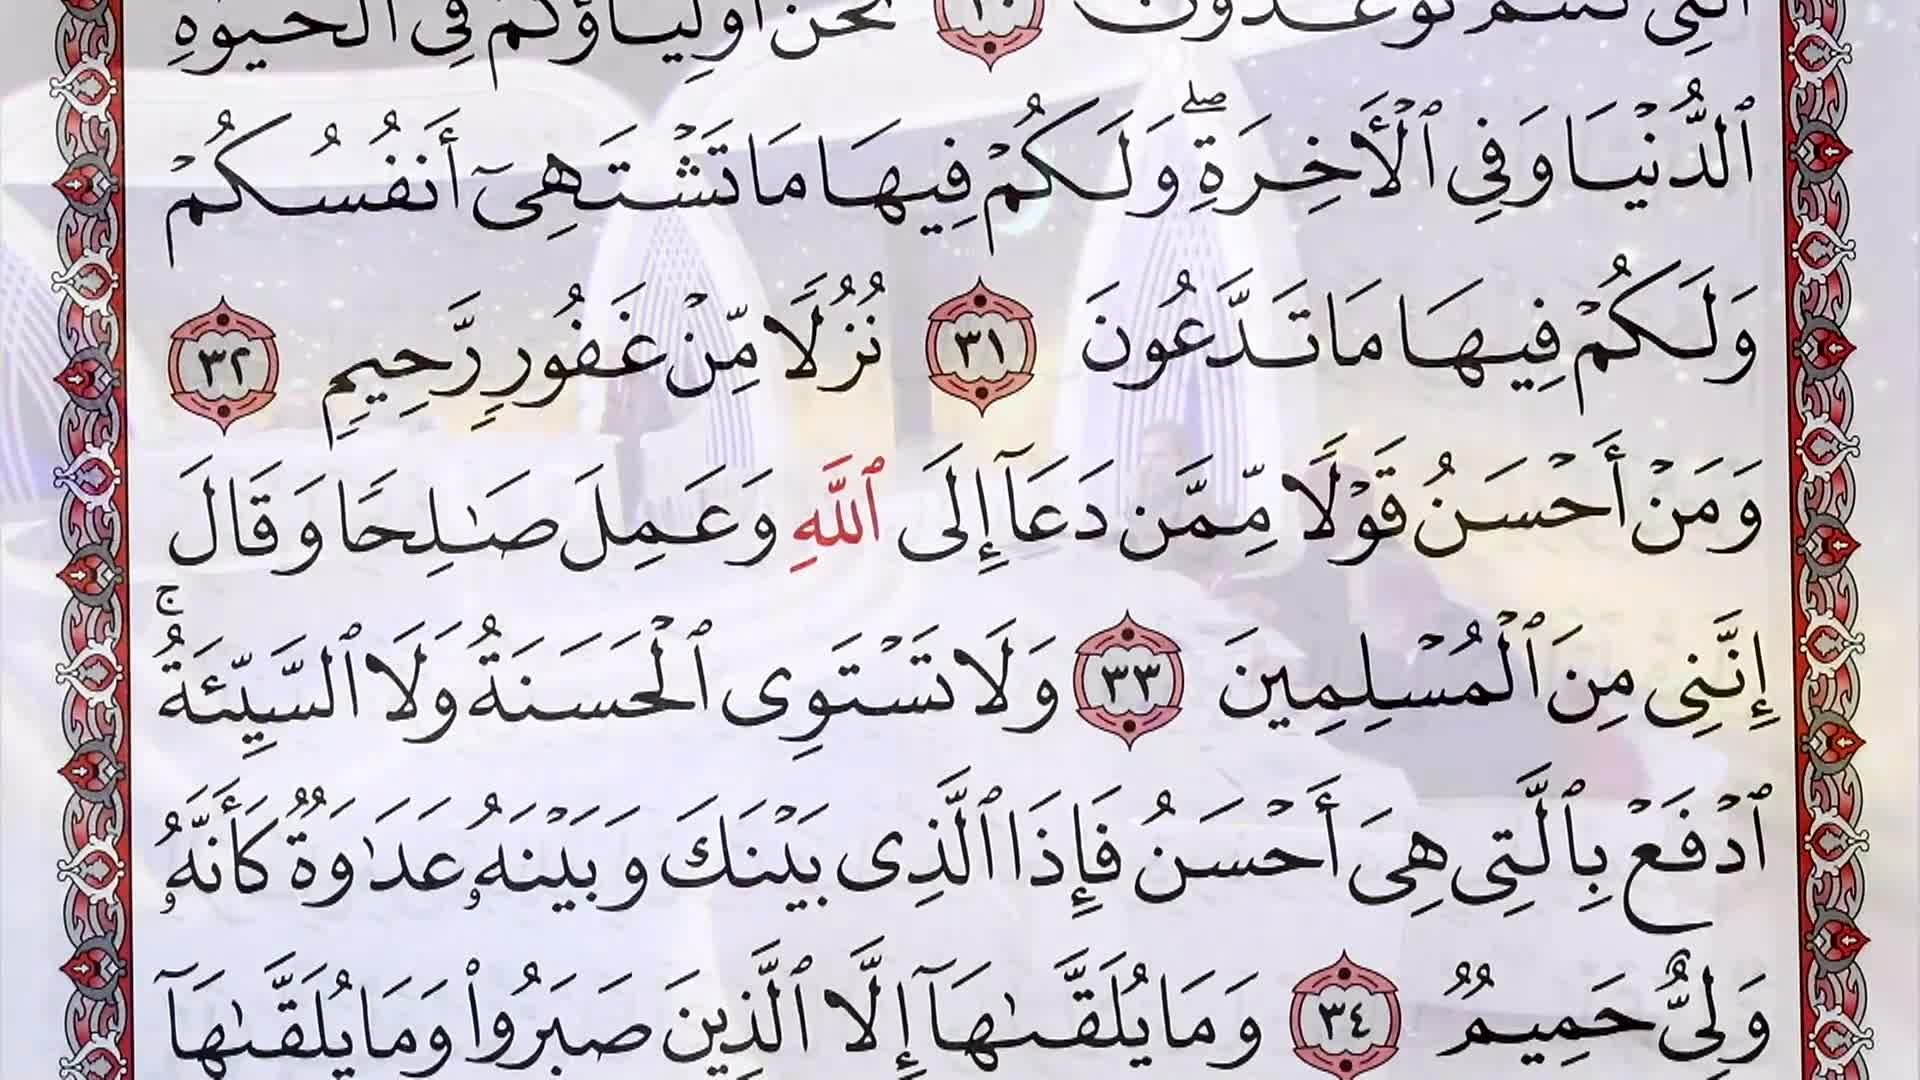 ٱلَّتِي كُنتُمْ تُوعَدُونَ ٣٠ نَحْنُ أَوْلِيَاؤُكُمْ فِى ٱلْحَيَوٰةِ
ٱلدُّنْيَا وَفِى ٱلْأَخِرَةِ ۖ وَلَكُمْ فِيهَا مَا تَشْتَهِىٓ أَنفُسُكُمْ
وَلَكُمْ فِيهَا مَا تَدَّعُونَ ٣١ نُزُلًا مِّنْ غَفُورٍ رَّحِيمٍ ٣٢
وَمَنْ أَحْسَنُ قَوْلًا مِّمَّن دَعَآ إِلَى ٱللَّهِ وَعَمِلَ صَـٰلِحًا وَقَالَ
إِنَّنِى مِنَ ٱلْمُسْلِمِينَ ٣٣ وَلَا تَسْتَوِى ٱلْحَسَنَةُ وَلَا ٱلسَّيِّئَةُ ۚ
ٱدْفَعْ بِٱلَّتِى هِىَ أَحْسَنُ فَإِذَا ٱلَّذِى بَيْنَكَ وَبَيْنَهُۥ عَدَٰوَةٌ كَأَنَّهُۥ
وَلِىٌّ حَمِيمٌ ٣٤ وَمَا يُلَقَّىٰهَآ إِلَّا ٱلَّذِينَ صَبَرُوا۟ وَمَا يُلَقَّىٰهَآ